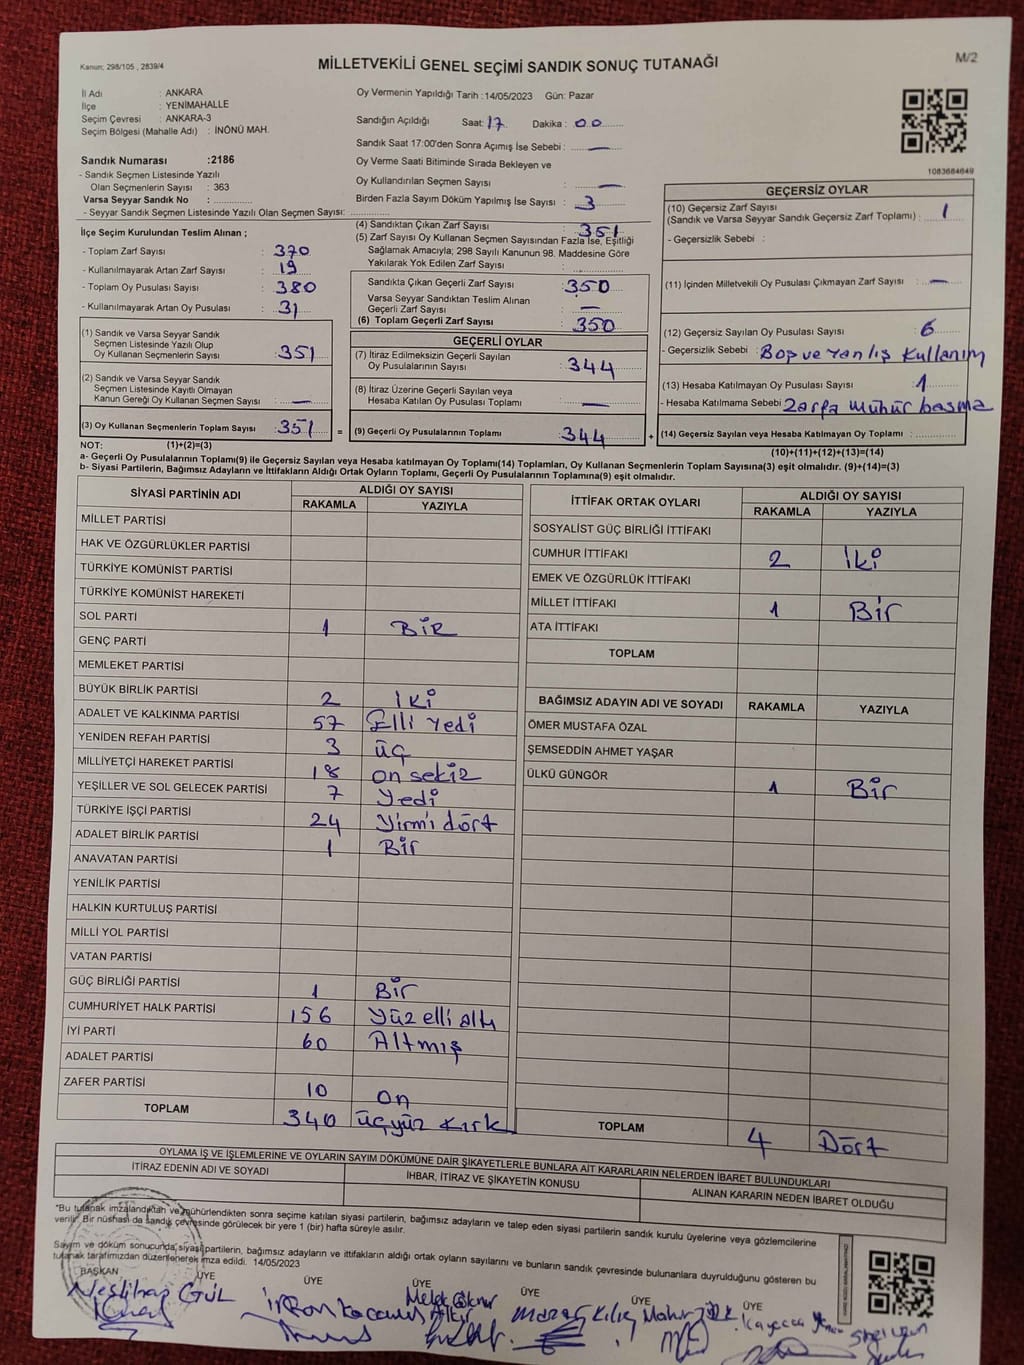 Kanun: 298/105 , 2839/4
MİLLETVEKİLİ GENEL SEÇİMİ SANDIK SONUÇ TUTANAĞI
M/2
İl Adı : ANKARA
İlçe : YENİMAHALLE
Seçim Çevresi : ANKARA-3
Seçim Bölgesi (Mahalle Adı) : İNÖNÜ MAH.
Sandık Numarası :2186
- Sandık Seçmen Listesinde Yazılı
Olan Seçmenlerin Sayısı : 363
Varsa Seyyar Sandık No :
- Seyyar Sandık Seçmen Listesinde Yazılı Olan Seçmen Sayısı:
İlçe Seçim Kurulundan Teslim Alınan ;
- Toplam Zarf Sayısı : 370
- Kullanılmayarak Artan Zarf Sayısı : 19
- Toplam Oy Pusulası Sayısı : 380
- Kullanılmayarak Artan Oy Pusulası : 31
(1) Sandık ve Varsa Seyyar Sandık
Seçmen Listesinde Yazılı Olup
Oy Kullanan Seçmenlerin Sayısı : 351
(2) Sandık ve Varsa Seyyar Sandık
Seçmen Listesinde Kayıtlı Olmayan
Kanun Gereği Oy Kullanan Seçmen Sayısı : —
(3) Oy Kullanan Seçmenlerin Toplam Sayısı : 351
Oy Vermenin Yapıldığı Tarih :14/05/2023 Gün: Pazar
Sandığın Açıldığı Saat: 17 Dakika : 00
Sandık Saat 17:00'den Sonra Açımış İse Sebebi : —
Oy Verme Saati Bitiminde Sırada Bekleyen ve
Oy Kullandırılan Seçmen Sayısı : —
Birden Fazla Sayım Döküm Yapılmış İse Sayısı : 3
(4) Sandıktan Çıkan Zarf Sayısı : 351
(5) Zarf Sayısı Oy Kullanan Seçmen Sayısından Fazla İse, Eşitliği
Sağlamak Amacıyla; 298 Sayılı Kanunun 98. Maddesine Göre
Yakılarak Yok Edilen Zarf Sayısı :
Sandıkta Çıkan Geçerli Zarf Sayısı : 350
Varsa Seyyar Sandıktan Teslim Alınan
Geçerli Zarf Sayısı : —
(6) Toplam Geçerli Zarf Sayısı : 350
GEÇERLİ OYLAR
(7) İtiraz Edilmeksizin Geçerli Sayılan
Oy Pusulalarının Sayısı : 344
(8) İtiraz Üzerine Geçerli Sayılan veya
Hesaba Katılan Oy Pusulası Toplamı : —
= (9) Geçerli Oy Pusulalarının Toplamı : 344 +
1083684649
GEÇERSİZ OYLAR
(10) Geçersiz Zarf Sayısı
(Sandık ve Varsa Seyyar Sandık Geçersiz Zarf Toplamı) : 1
- Geçersizlik Sebebi :
(11) İçinden Milletvekili Oy Pusulası Çıkmayan Zarf Sayısı : —
(12) Geçersiz Sayılan Oy Pusulası Sayısı : 6
- Geçersizlik Sebebi : Boş ve Yanlış Kullanım
(13) Hesaba Katılmayan Oy Pusulası Sayısı : 1
- Hesaba Katılmama Sebebi : Zarfa mühür basma
(14) Geçersiz Sayılan veya Hesaba Katılmayan Oy Toplamı :
NOT: (1)+(2)=(3) (10)+(11)+(12)+(13)=(14)
a- Geçerli Oy Pusulalarının Toplamı(9) ile Geçersiz Sayılan veya Hesaba Katılmayan Oy Toplamı(14) Toplamları, Oy Kullanan Seçmenlerin Toplam Sayısına(3) eşit olmalıdır. (9)+(14)=(3)
b- Siyasi Partilerin, Bağımsız Adayların ve İttifakların Aldığı Ortak Oyların Toplamı, Geçerli Oy Pusulalarının Toplamına(9) eşit olmalıdır.
SİYASİ PARTİNİN ADI ALDIĞI OY SAYISI
RAKAMLA YAZIYLA
MİLLET PARTİSİ
HAK VE ÖZGÜRLÜKLER PARTİSİ
TÜRKİYE KOMÜNİST PARTİSİ
TÜRKİYE KOMÜNİST HAREKETİ
SOL PARTİ 1 BİR
GENÇ PARTİ
MEMLEKET PARTİSİ
BÜYÜK BİRLİK PARTİSİ 2 İki
ADALET VE KALKINMA PARTİSİ 57 Elli Yedi
YENİDEN REFAH PARTİSİ 3 üç
MİLLİYETÇİ HAREKET PARTİSİ 18 on sekiz
YEŞİLLER VE SOL GELECEK PARTİSİ 7 Yedi
TÜRKİYE İŞÇİ PARTİSİ 24 Yirmi dört
ADALET BİRLİK PARTİSİ 1 Bir
ANAVATAN PARTİSİ
YENİLİK PARTİSİ
HALKIN KURTULUŞ PARTİSİ
MİLLİ YOL PARTİSİ
VATAN PARTİSİ
GÜÇ BİRLİĞİ PARTİSİ 1 Bir
CUMHURİYET HALK PARTİSİ 156 Yüz elli altı
İYİ PARTİ 60 Altmış
ADALET PARTİSİ
ZAFER PARTİSİ 10 On
TOPLAM 340 üçyüz kırk
İTTİFAK ORTAK OYLARI ALDIĞI OY SAYISI
RAKAMLA YAZIYLA
SOSYALİST GÜÇ BİRLİĞİ İTTİFAKI
CUMHUR İTTİFAKI 2 İki
EMEK VE ÖZGÜRLÜK İTTİFAKI
MİLLET İTTİFAKI 1 Bir
ATA İTTİFAKI
TOPLAM
BAĞIMSIZ ADAYIN ADI VE SOYADI RAKAMLA YAZIYLA
ÖMER MUSTAFA ÖZAL
ŞEMSEDDİN AHMET YAŞAR
ÜLKÜ GÜNGÖR 1 Bir
TOPLAM 4 Dört
OYLAMA İŞ VE İŞLEMLERİNE VE OYLARIN SAYIM DÖKÜMÜNE DAİR ŞİKAYETLERLE BUNLARA AİT KARARLARIN NELERDEN İBARET BULUNDUKLARI
İTİRAZ EDENİN ADI VE SOYADI İHBAR, İTİRAZ VE ŞİKAYETİN KONUSU ALINAN KARARIN NEDEN İBARET OLDUĞU
"Bu tutanak imzalandıktan ve mühürlendikten sonra seçime katılan siyasi partilerin, bağımsız adayların ve talep eden siyasi partilerin sandık kurulu üyelerine veya gözlemcilerine
verilir. Bir nüshası da sandık çevresinde görülecek bir yere 1 (bir) hafta süreyle asılır.
Sayım ve döküm sonucunda,siyasi partilerin, bağımsız adayların ve ittifakların aldığı ortak oyların sayılarını ve bunların sandık çevresinde bulunanlara duyrulduğunu gösteren bu
tutanak tarafımızdan düzenlenerek imza edildi. 14/05/2023
BAŞKAN ÜYE ÜYE ÜYE ÜYE ÜYE ÜYE
Neslihan GÜL